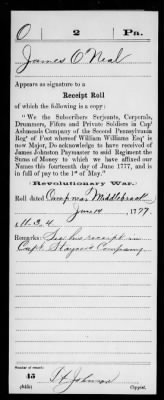 O 2 Pa.
James O'Neal
Appears as signature to a
Receipt Roll
of which the following is a copy:
"We the Subscribers Serjeants, Corporals,
Drummers, Fifers and Private Soldiers in Capt
Ashmeads Company of the Second Pennsylvania
Regt of Foot whereof William Williams Esqr is
now Major, Do acknowledge to have received of
James Johnston Paymaster to said Regiment the
Sums of Money to which we have affixed our
Names this fourteenth day of June 1777, and is
in full of pay to the 1st of May."
(Revolutionary War.)
Roll dated Camp near Middlebrook
June 14, 1777.
11.3.4
Remarks: See his receipt in
Capt. Company
Number of record:
45
Johnson
Copyist.